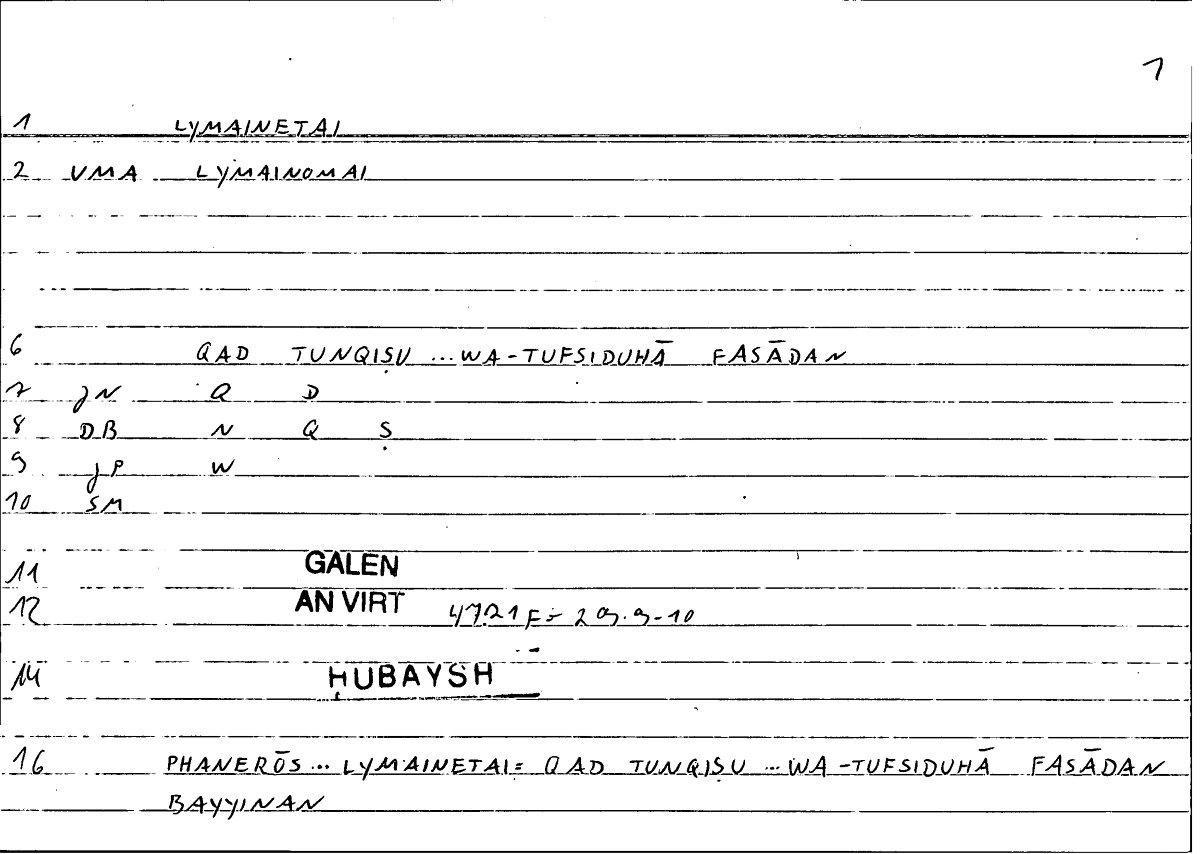 1
1 LYMAINETAI
2 VMA LYMAINOMAI
6 QAD TUNQIṢU ...WA-TUFSIDUHĀ FASĀDAN
7 JN Q D
8 DB N Q Ṣ
9 JP W
10 SM
11 GALEN
12 AN VIRT 47.21 F = 29.9-10
14 ḤUBAYSH
16 PHANERŌS... LYMAINETAI= QAD TUNQIṢU ...WA-TUFSIDUHĀ FASĀDAN
BAYYINAN